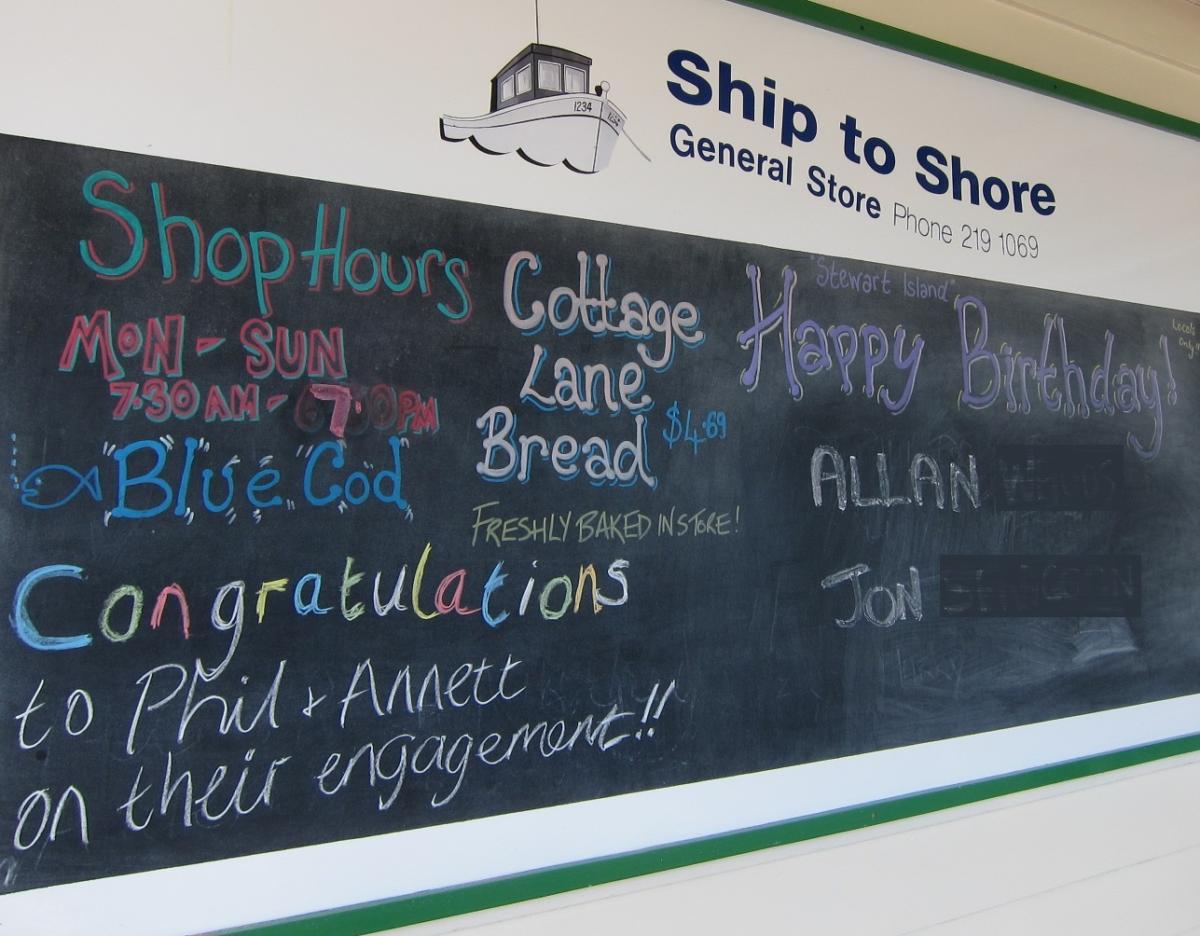 1234
1234
Ship to Shore
General Store Phone 219 1069
Shop Hours
MON - SUN
7.30 AM - 7.30PM
Blue Cod
Congratulations
to Phil + Annett
on their engagement!!
Cottage
Lane
Bread $4.69
FRESHLY BAKED IN STORE!
"Stewart Island"
Happy Birthday!
Locals
Only
ALLAN
JON